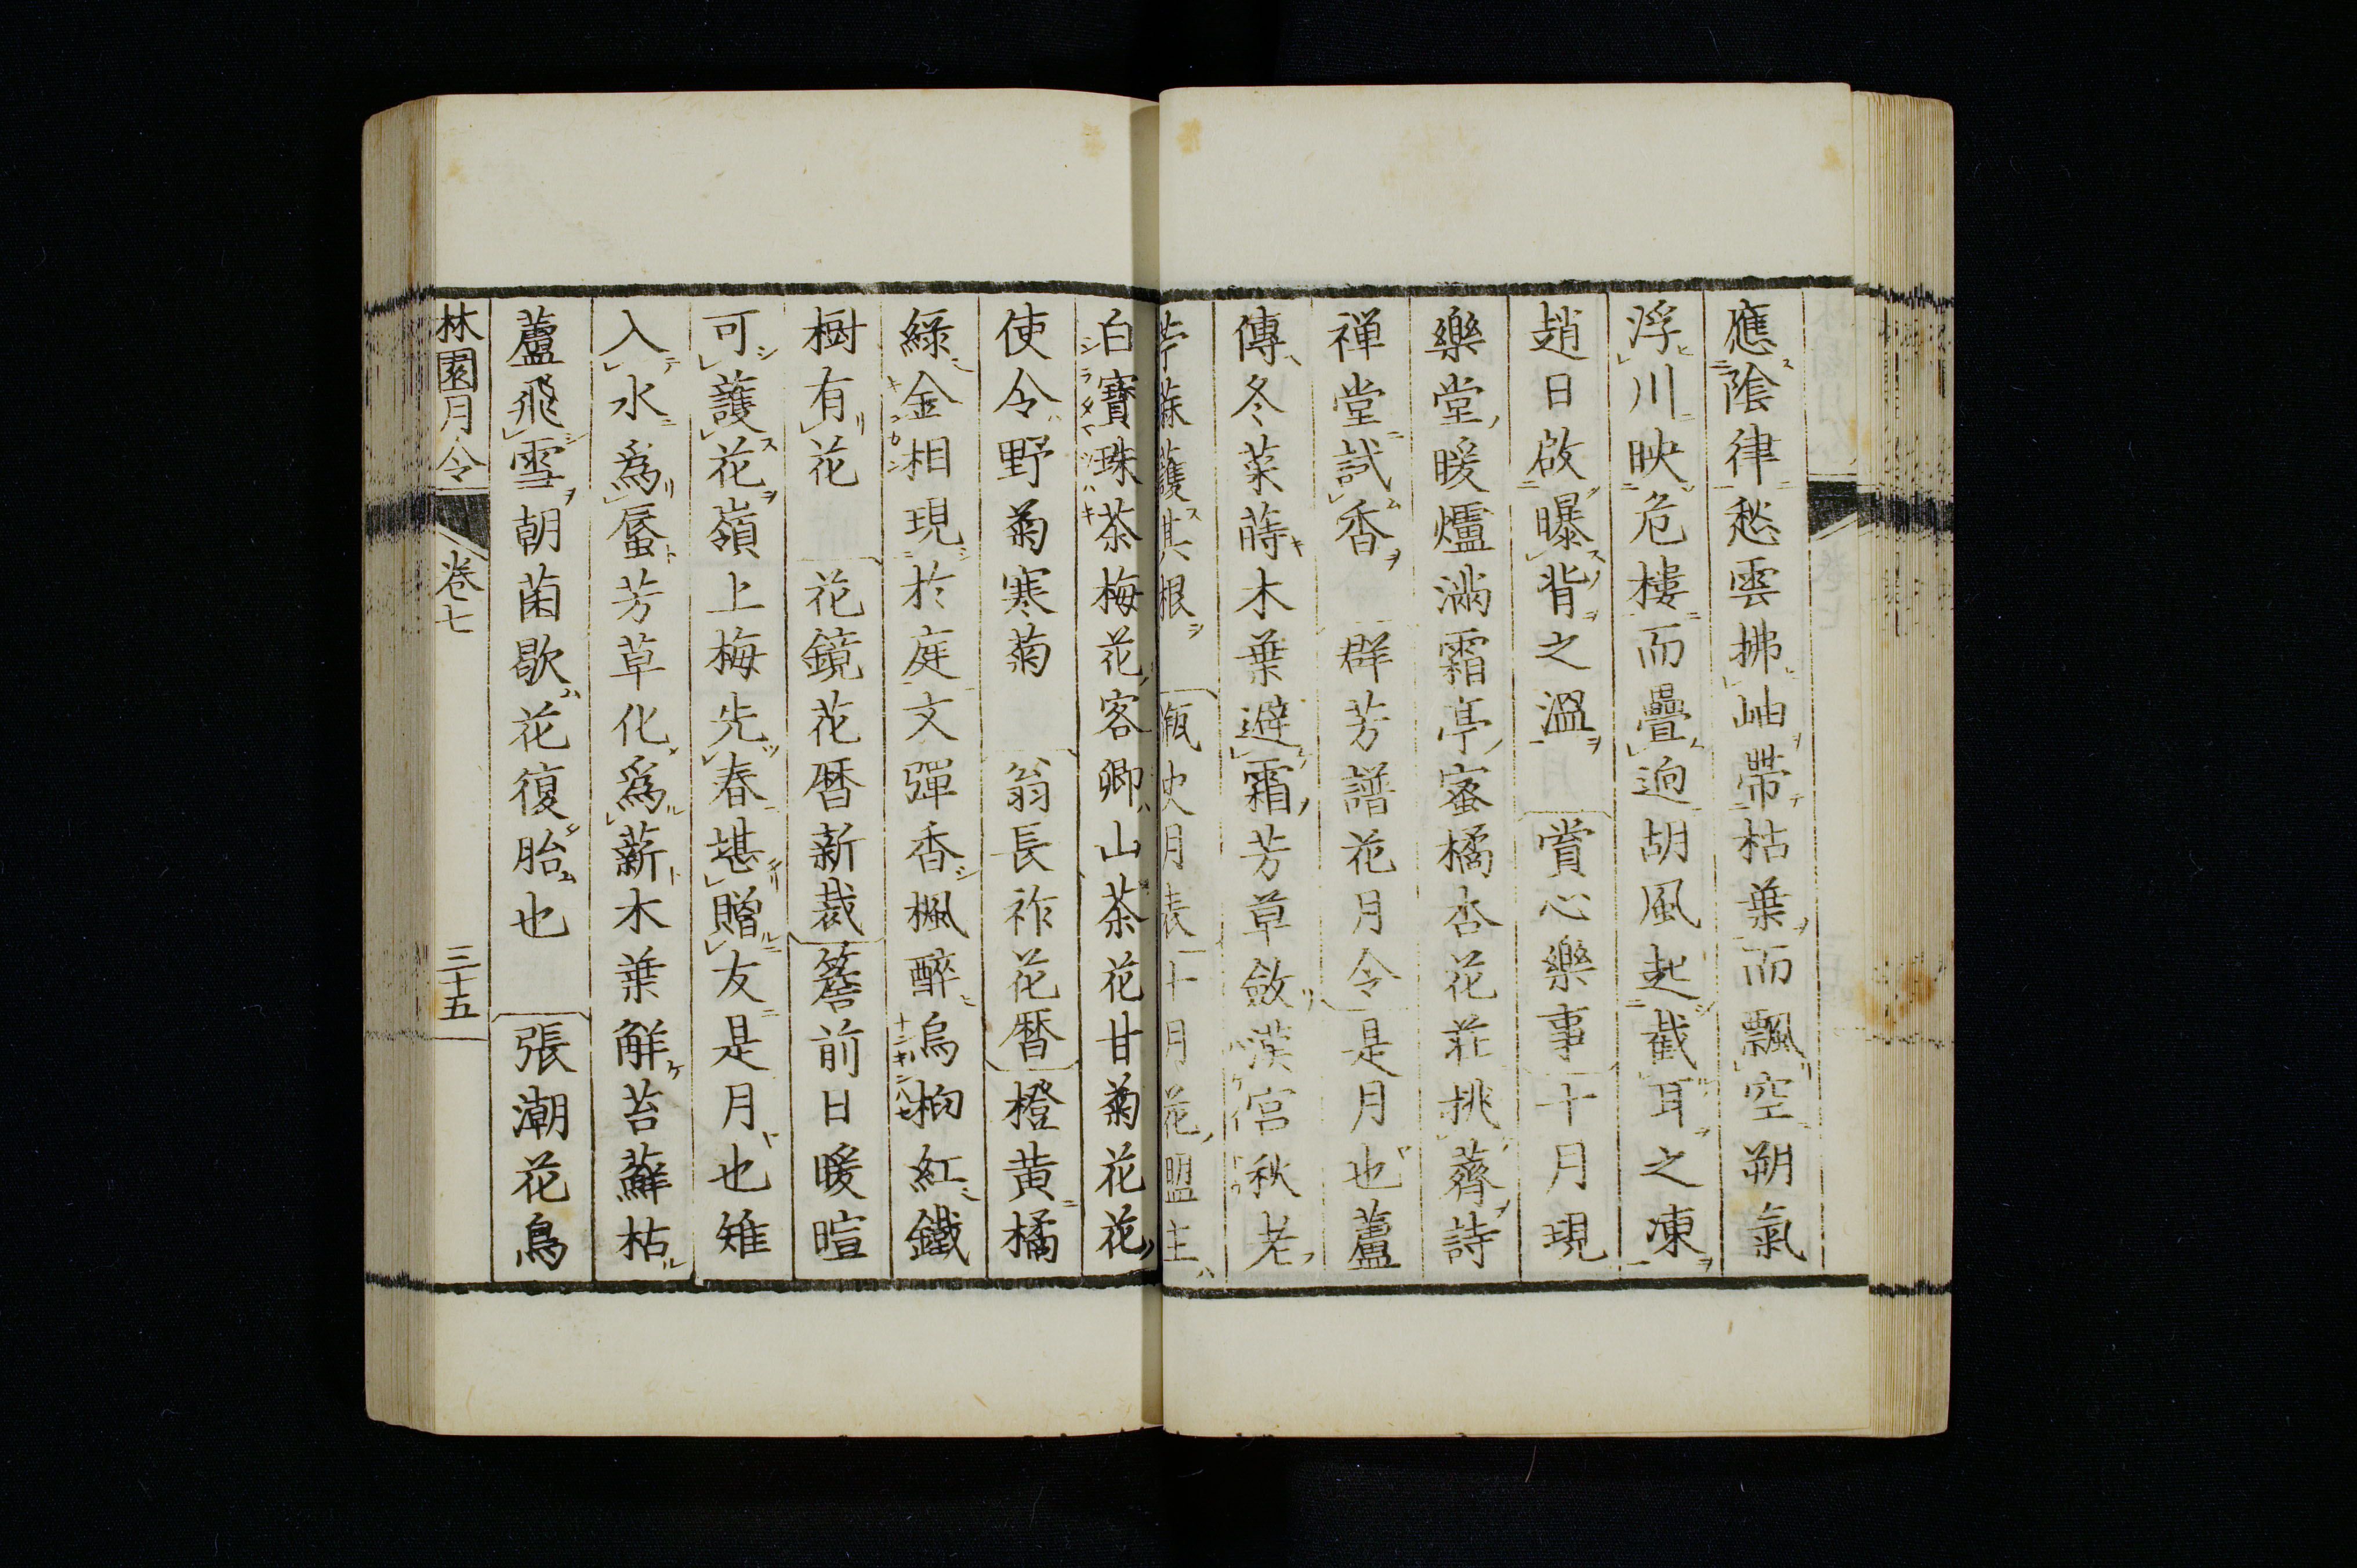 應陰律愁雲拂岫帶枯葉而飄空朔氣
浮川映危樓而疊逈胡風起截耳之凍
趙日啟曝背之溫 賞心樂事十月現
樂堂暖爐滿霜亭蜜橘杏花莊挑薺詩
禅堂試香 群芳譜花月令是月也蘆
傳冬菜蒔木葉避霜芳草斂漢宮秋老
苧蔴護其根 瓶史月表十月花盟主
白寶珠茶梅花客卿山茶花甘菊花花
使令野菊寒菊 翁長祚花曆橙黄橘
綠金相現於庭文彈香楓醉烏桕紅鐵
樹有花 花鏡花曆新裁簷前日暖暄
可護花嶺上梅先春堪贈友是月也雉
入水爲蜃芳草化爲薪木葉觧苔蘚枯
蘆飛雪朝菌歇花復胎也 張潮花鳥
林園月令 卷七 三十五